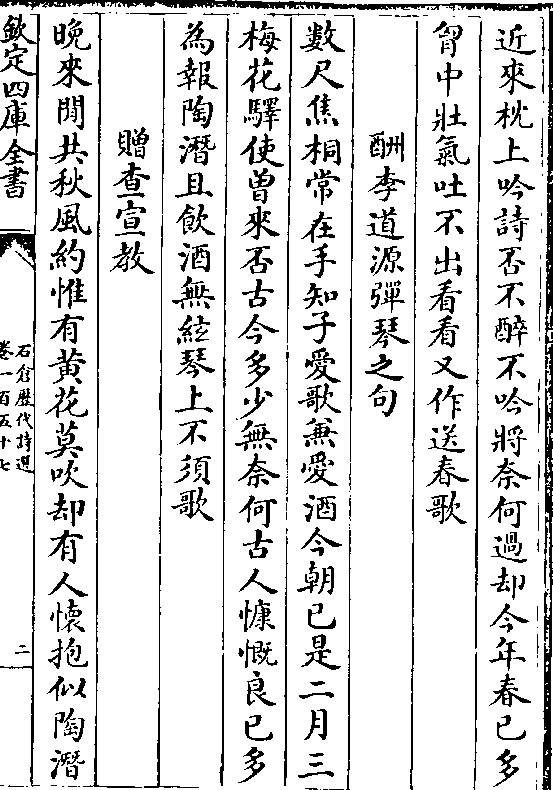 近來枕上吟詩否不醉不吟將奈何過却今年春已多
胷中壯氣吐不出看看又作送春歌
酬李道源彈琴之句
數尺焦桐常在手知子愛歌兼愛酒今朝已是二月三
梅花驛使曽來否古今多少無奈何古人慷慨良已多
為報陶潛且飲酒無絃琴上不須歌
贈查宣教
晩來閒共秋風約惟有黄花莫吹却有人懷抱似陶潛
欽定四庫全書
石倉歷代詩選
卷一百五十七
二